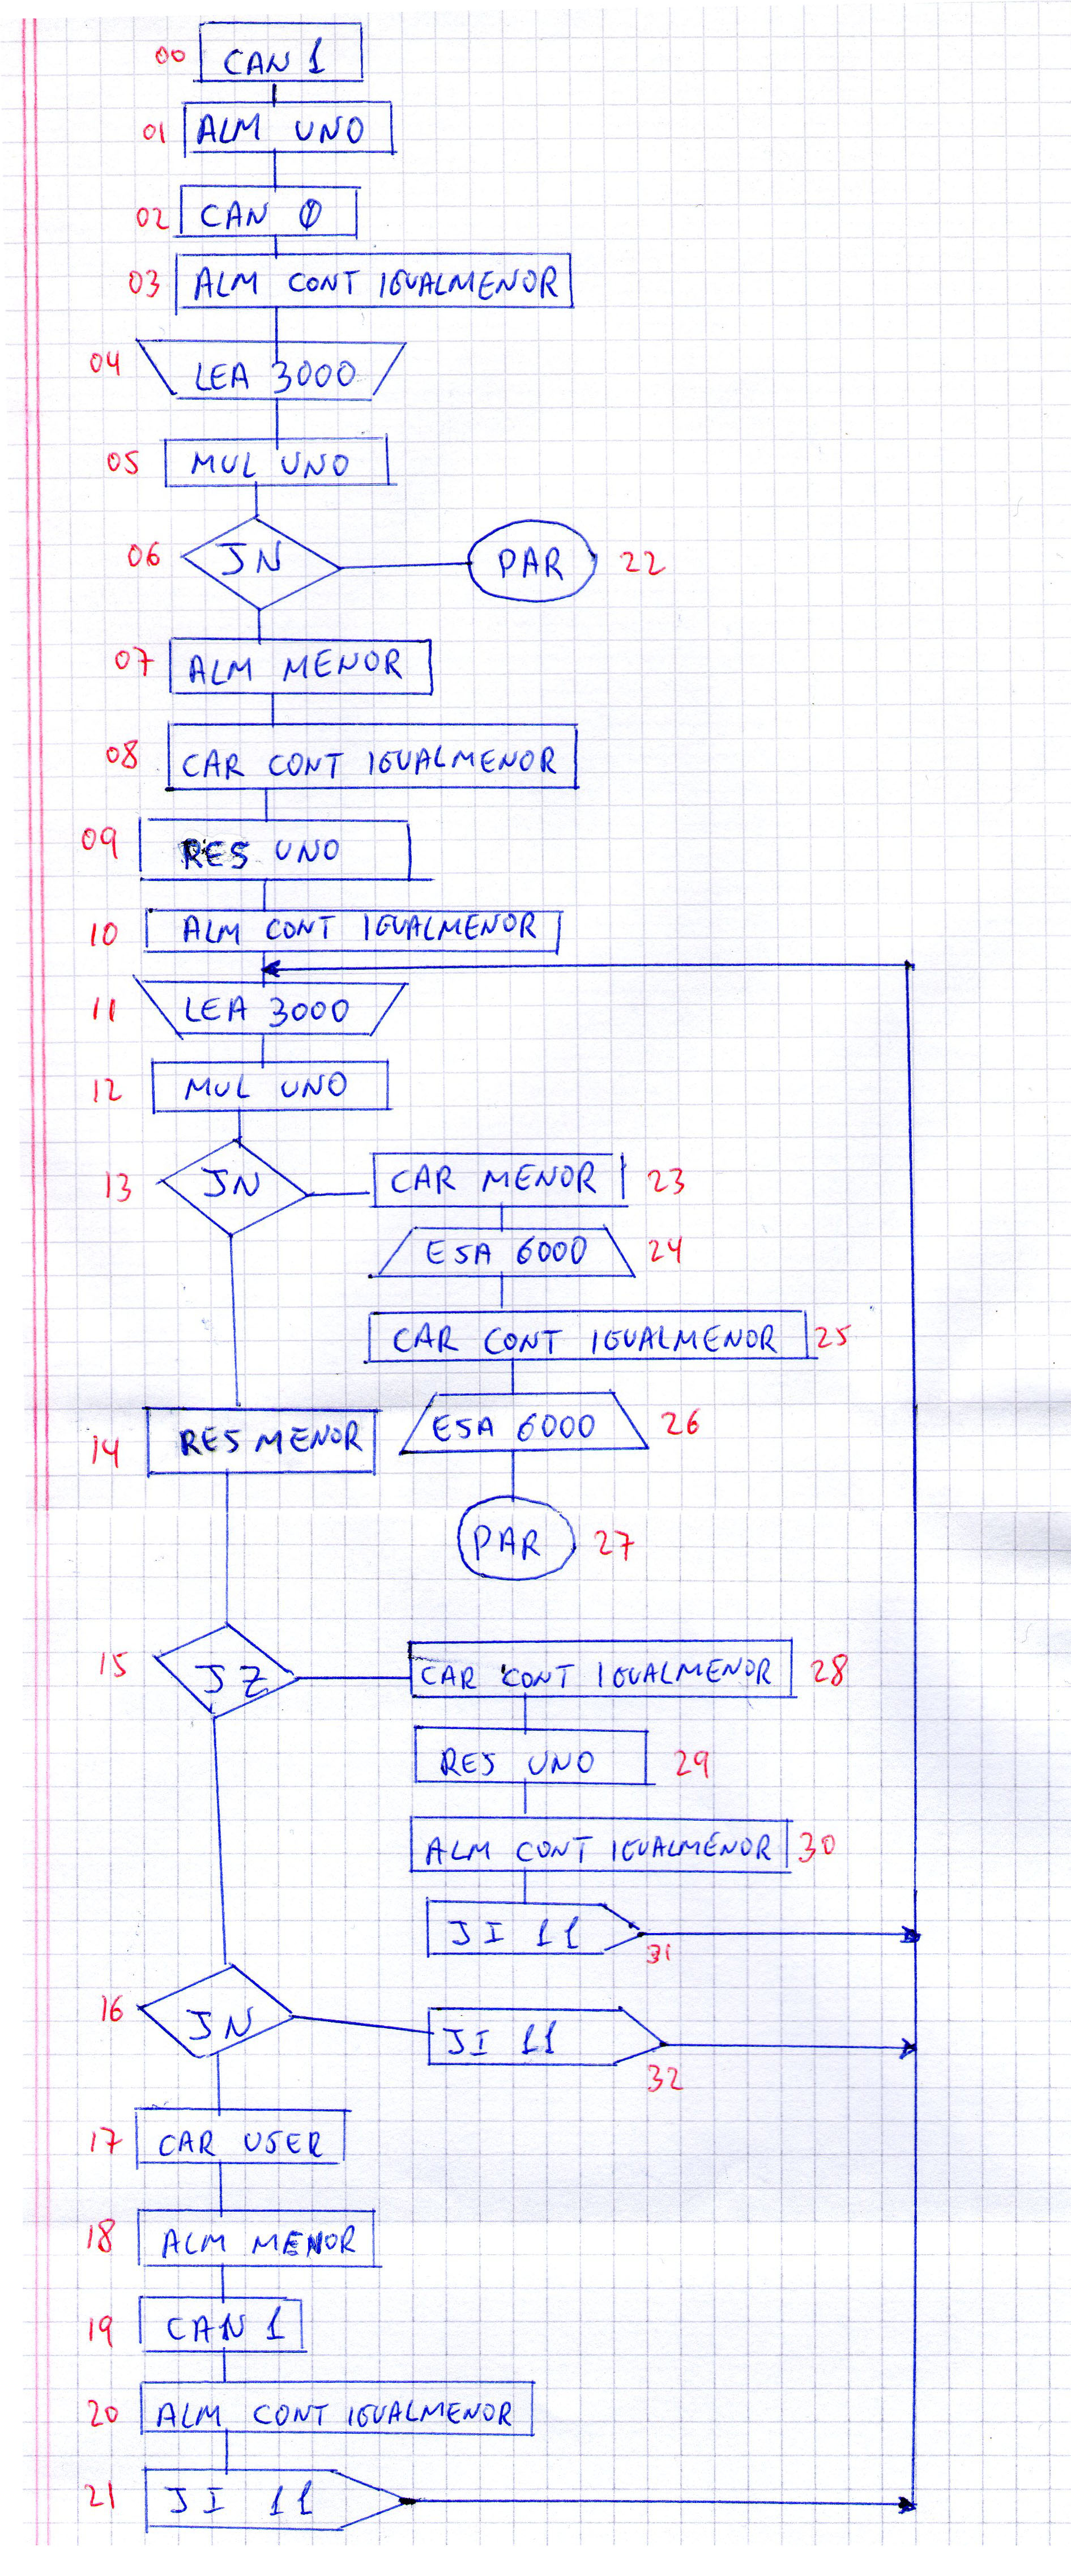 00 CAN 1
01 ALM UNO
02 CAN 0
03 ALM CONT IGUALMENOR
04 LEA 3000
05 MUL UNO
06 JN PAR 22
07 ALM MENOR
08 CAR CONT IGUALMENOR
09 RES UNO
10 ALM CONT IGUALMENOR
11 LEA 3000
12 MUL UNO
13 JN CAR MENOR 23
ESA 6000 24
CAR CONT IGUALMENOR 25
14 RES MENOR ESA 6000 26
PAR 27
15 JZ CAR CONT IGUALMENOR 28
RES UNO 29
ALM CONT IGUALMENOR 30
JI 11 31
16 JN JI 11 32
17 CAR USER
18 ALM MENOR
19 CAN 1
20 ALM CONT IGUALMENOR
21 JI 11